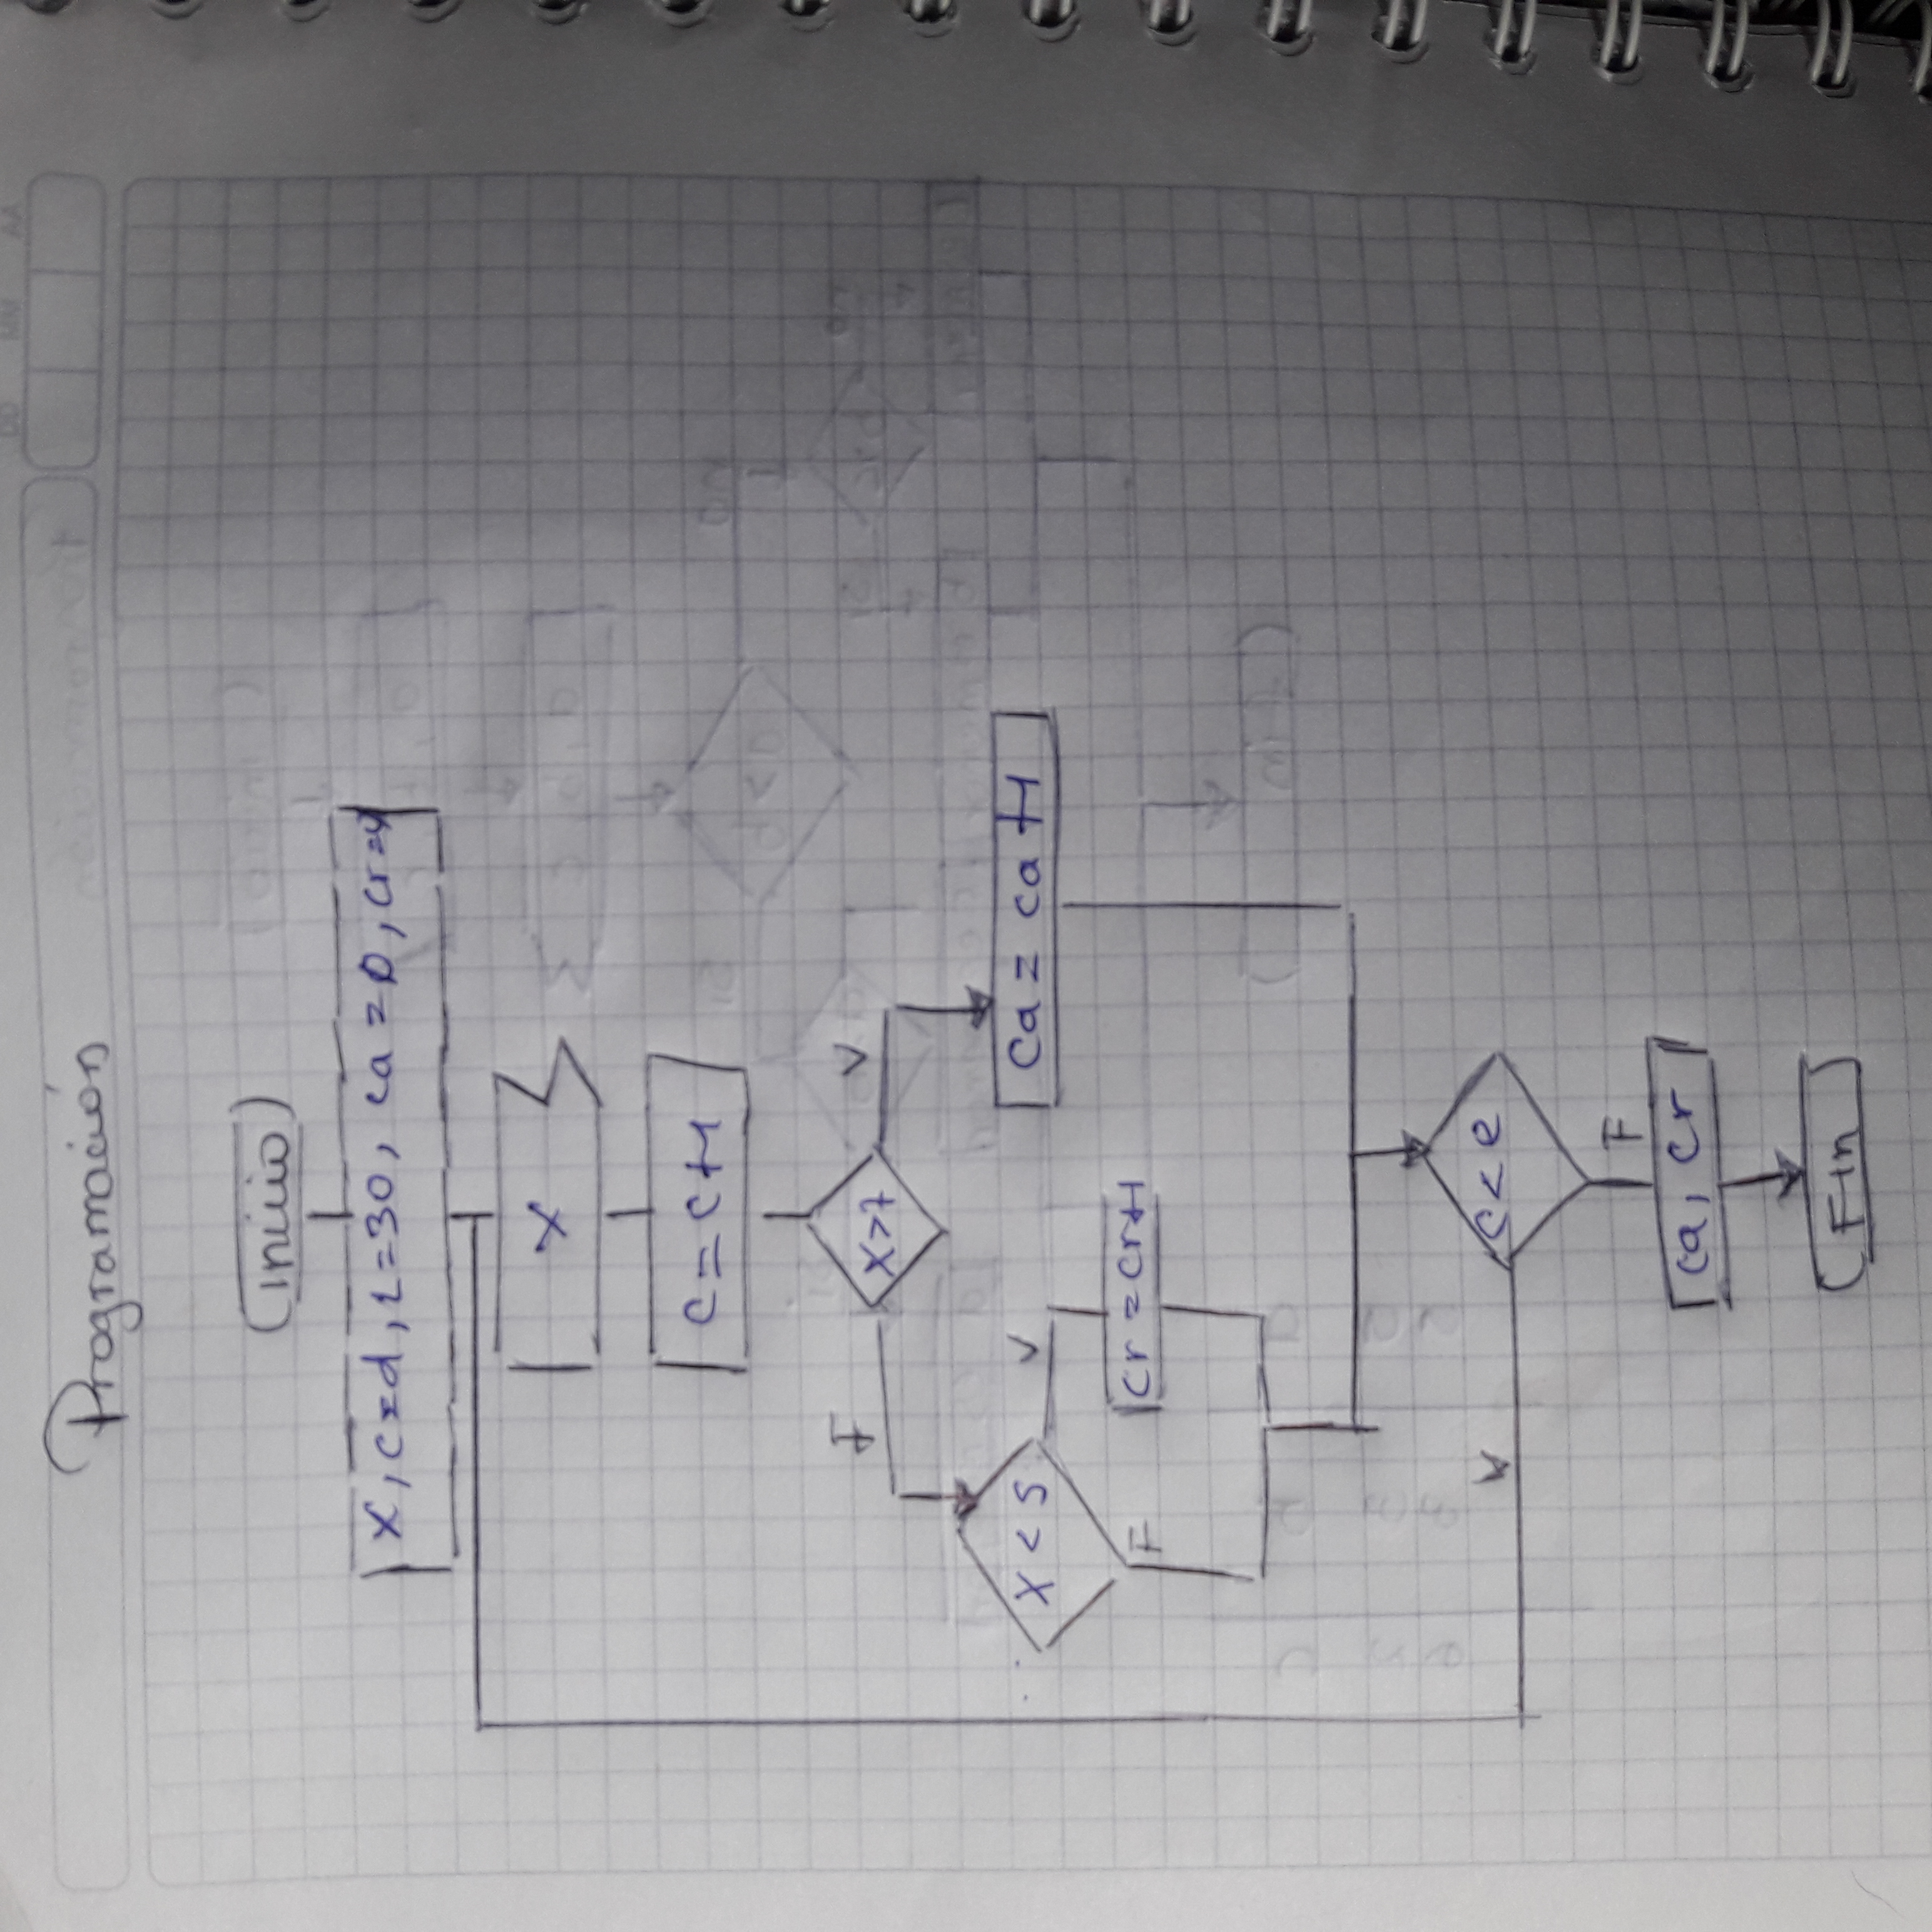 DD MM AA
Programación
inicio
X, c=d, l=30, ca=0, cr=
X
c=c+1
F
X>7
V
X<5
V
ca=ca+1
F
cr=cr+1
V
c<e
F
ca, cr
Fin